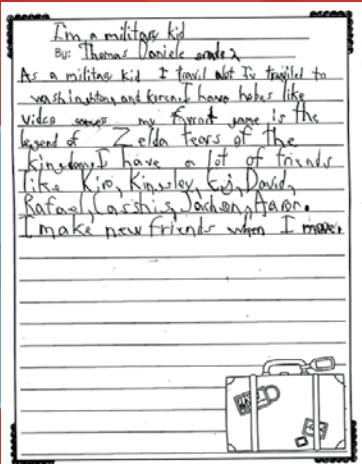 I'm a military kid
By: Thomas Daniele grade 2
As a military kid I travil alot I'v traviled to
washinghton, and korea. I have hobes like
video games my favorit game is the
legend of Zelda tears of the
kingdom. I have a lot of friends
like Kiro, Kingsley, Cj, David,
Rafael, Casshis, Jackson, Aaron.
I make new friends when I move.